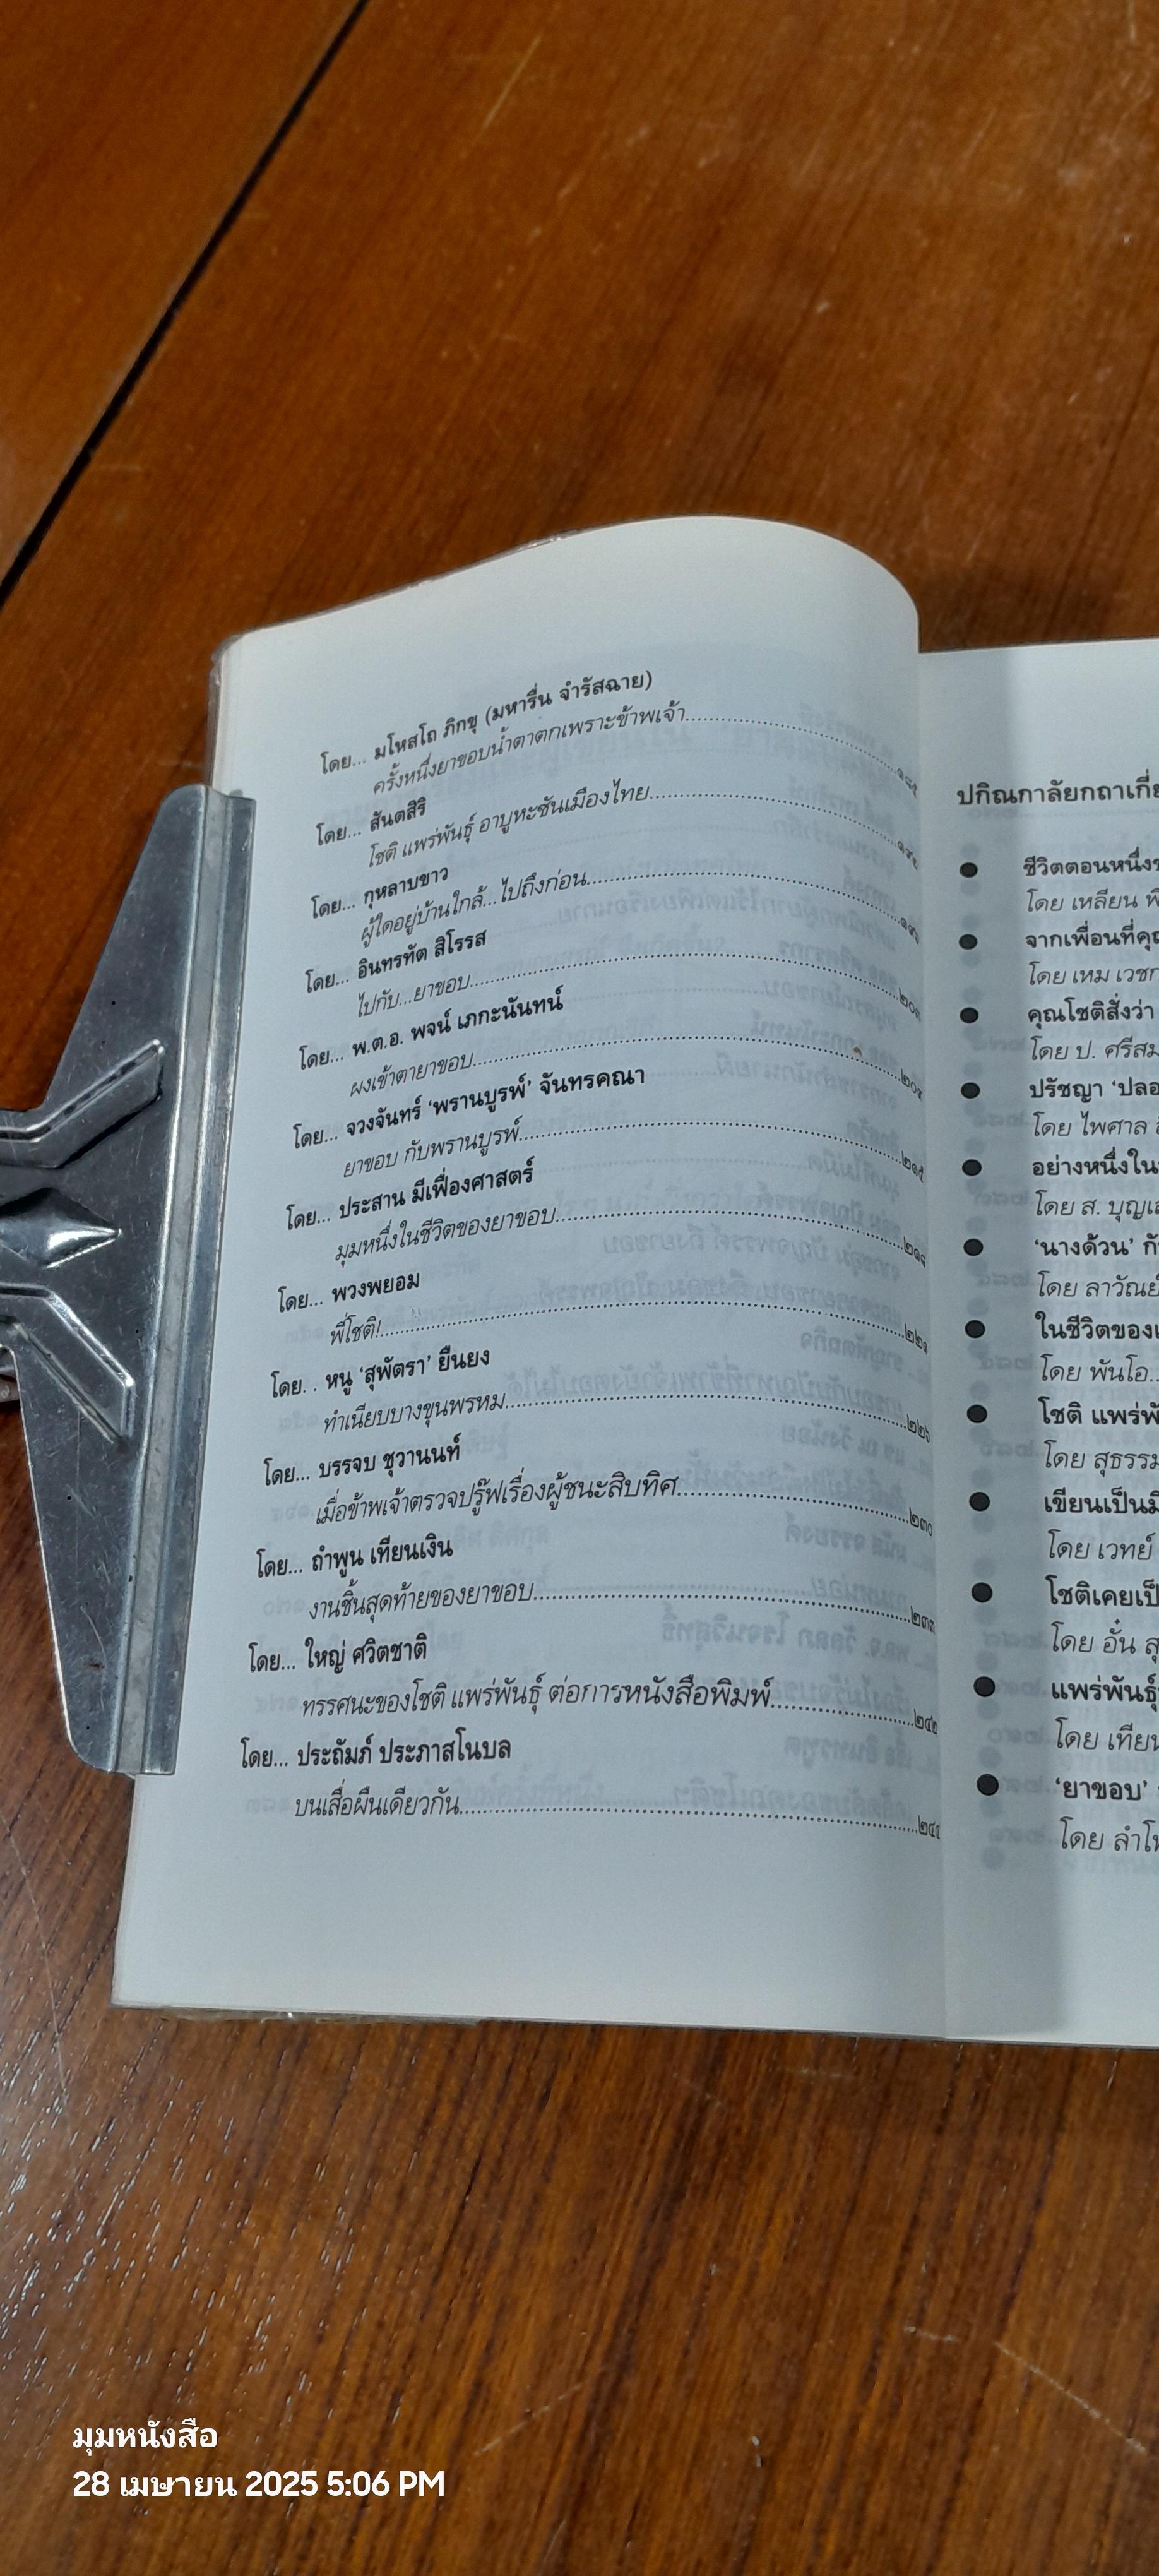 โดย... มโหสโถ ภิกขุ (มหารื่น จำรัสฉาย)
ครั้งหนึ่งยาขอบน้ำตาตกเพราะข้าพเจ้า
โดย... สันตสิริ
โชติ แพร่พันธุ์ อาบูหะซันเมืองไทย
โดย... กุหลาบขาว
ผู้ใดอยู่บ้านใกล้...ไปถึงก่อน
โดย... อินทรทัต สิโรรส
ไปกับ...ยาขอบ
โดย... พ.ต.อ. พจน์ เภกะนันทน์
ผงเข้าตายาขอบ
โดย... จวงจันทร์ ‘พรานบูรพ์’ จันทรคณา
ยาขอบ กับพรานบูรพ์
โดย... ประสาน มีเฟื่องศาสตร์
มุมหนึ่งในชีวิตของยาขอบ
โดย... พวงพยอม
พี่โชติ! ๒๒๑
โดย. . หนู ‘สุพัตรา’ ยืนยง
ทำเนียบบางขุนพรหม ๒๒๖
โดย... บรรจบ ชุวานนท์
เมื่อข้าพเจ้าตรวจปรู๊ฟเรื่องผู้ชนะสิบทิศ ๒๓๐
โดย... ถำพูน เทียนเงิน
งานชิ้นสุดท้ายของยาขอบ ๒๓๓
โดย... ใหญ่ ศวิตชาติ
ทรรศนะของโชติ แพร่พันธุ์ ต่อการหนังสือพิมพ์ ๒๔๒
โดย... ประถัมภ์ ประภาสโนบล
บนเสื่อผืนเดียวกัน
ปกิณกาลัยกถาเกี่ย
● ชีวิตตอนหนึ่งข
โดย เหลียน พิ
● จากเพื่อนที่คุณ
โดย เหม เวชก
● คุณโชติสั่งว่า
โดย ป. ศรีสม
● ปรัชญา ‘ปลอ
โดย ไพศาล
● อย่างหนึ่งใน
โดย ส. บุญเส
● ‘นางด้วน’ กั
โดย ลาวัณย์
● ในชีวิตของเ
โดย พันโอ..
● โชติ แพร่พั
โดย สุธรรม
● เขียนเป็นมิ
โดย เวทย์
● โชติเคยเป็
โดย อั๋น สุ
● แพร่พันธุ์
โดย เทียน
● ‘ยาขอบ’
โดย ลำไ
มุมหนังสือ
28 เมษายน 2025 5:06 PM